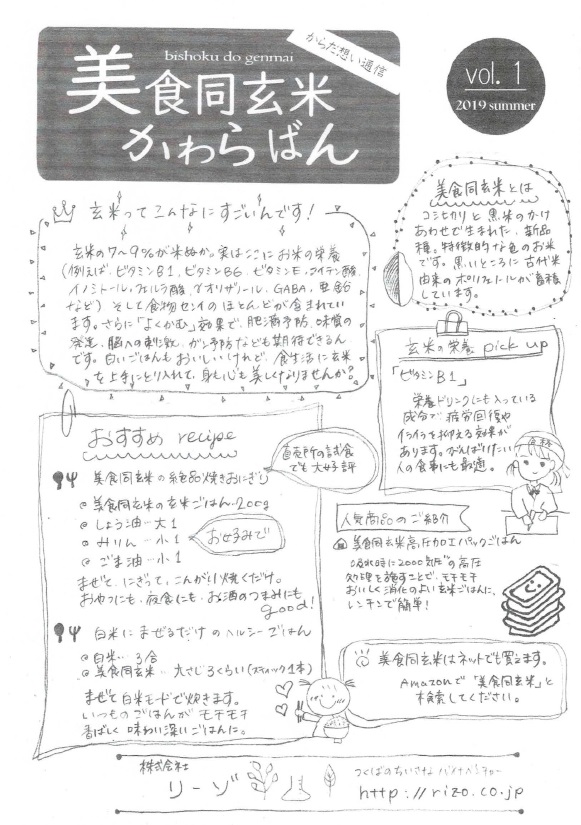 からだ想い通信
bishoku do genmai
美食同玄米
かわらばん
vol. 1
2019 summer
玄米ってこんなにすごいんです!
玄米の7~9%が米ぬか。実はここにお米の栄養
(例えば、ビタミンB1、ビタミンB6、ビタミンE、フィチン酸、
イノシトール、フェルラ酸、γオリザノール、GABA、亜鉛
など)そして食物センイのほとんどが含まれてい
ます。さらに「よくかむ」効果で、肥満予防、味覚の
発達、脳への刺激、ガン予防なども期待できるん
です。白いごはんもおいしいけれど、食生活に玄米
を上手にとり入れて、身も心も美しくなりませんか?
美食同玄米とは
コシヒカリと黒米のかけ
あわせで生まれた、新品
種。特徴的な色のお米
です。黒いところに古代米
由来のポリフェノールが蓄積
しています。
玄米の栄養 pick up
「ビタミンB1」
栄養ドリンクにも入っている
成分で疲労回復や
イライラを抑える効果が
あります。がんばりたい
人の食事にも最適。
合格
おすすめ recipe
直売所の試食
でも大好評
美食同玄米の絶品焼きおにぎり
@美食同玄米の玄米ごはん‥200g
@しょう油―大1
@みりん―小1
@ごま油―小1
お好みで
まぜて、にぎって、こんがり焼くだけ。
おやつにも、夜食にも、お酒のつまみにも
good!
白米にまぜるだけのヘルシーごはん
@白米‥3合
@美食同玄米‥大さじ3くらい(スティック1本)
まぜて白米モードで炊きます。
いつものごはんがモチモチ
香ばしく味わい深いごはんに。
人気商品のご紹介
美食同玄米高圧加工パックごはん
吸水時に2000気圧の高圧
処理を施すことで、モチモチ
おいしく消化のよい玄米ごはんに。
レンチンで簡単!
美食同玄米はネットでも買えます。
Amazonで「美食同玄米」と
検索してください。
株式会社
リーゾ
つくばのちいさなバイオベンチャー
http://rizo.co.jp